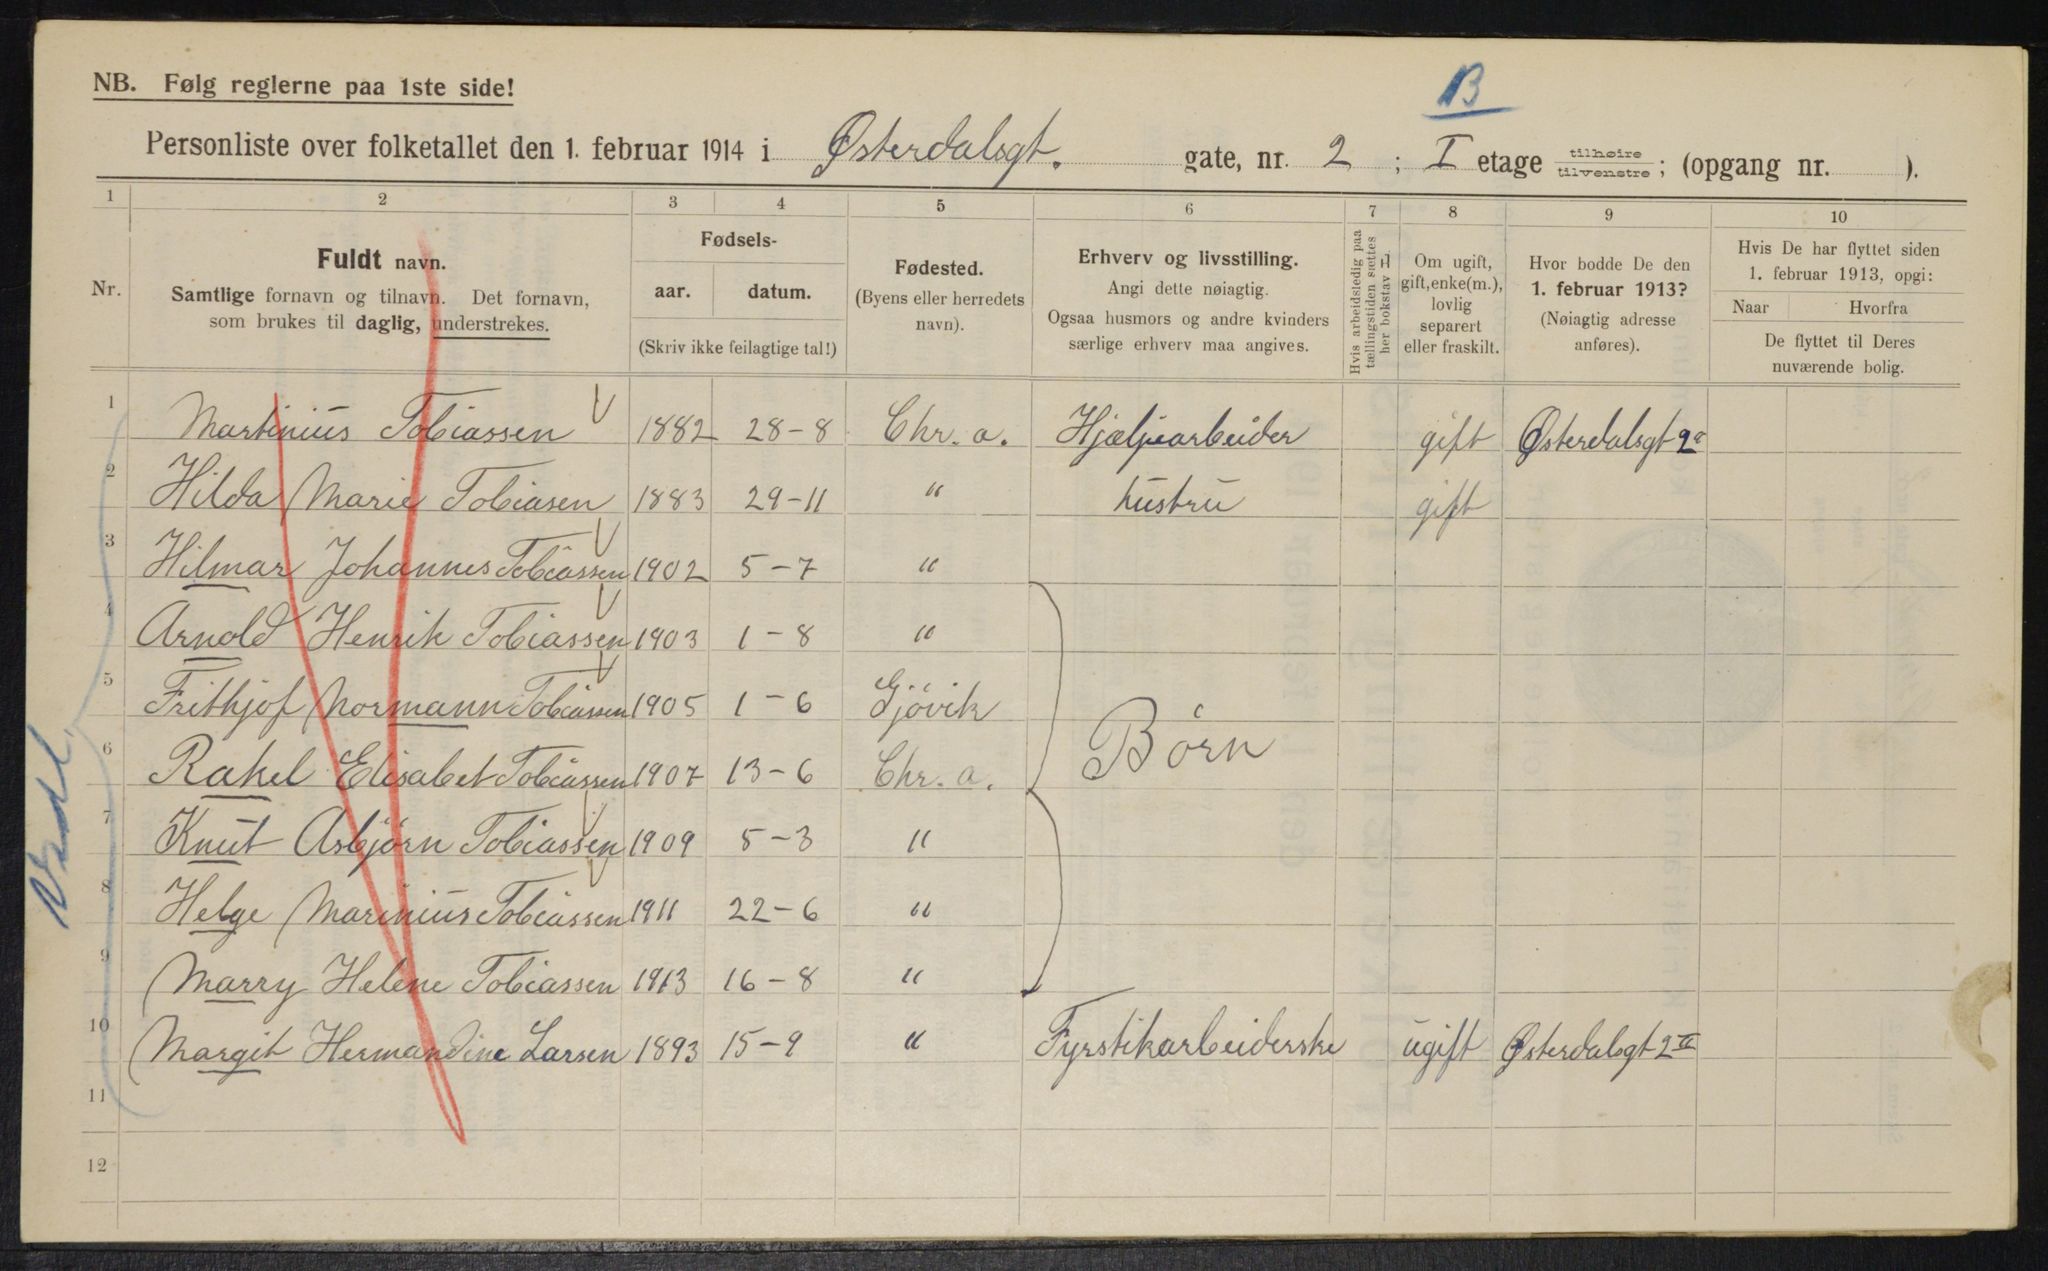 NB. Følg reglerne paa 1ste side!
B
Personliste over folketallet den 1. februar 1914 i Østerdalsgt. gate, nr. 2 ; I etage tilhøire tilvenstre ; (opgang nr. ).
1 2 3 4 5 6 7 8 9 10
Nr.
Fuldt navn.
Samtlige fornavn og tilnavn. Det fornavn,
som brukes til daglig, understrekes.
Fødsels-
aar. datum.
(Skriv ikke feilagtige tal!)
Fødested.
(Byens eller herredets
navn).
Erhverv og livsstilling.
Angi dette nøiagtig.
Ogsaa husmors og andre kvinders
særlige erhverv maa angives.
Hvis arbeidsledig paa
tællingstiden sættes
her bokstav
Om ugift,
gift, enke(m.),
lovlig
separert
eller fraskilt.
Hvor bodde De den
1. februar 1913?
(Nøiagtig adresse
anføres).
Hvis De har flyttet siden
1. februar 1913, opgi:
Naar Hvorfra
De flyttet til Deres
nuværende bolig.
1 Martinius Tobiassen 1882 28-8 Chr. a. Hjælpearbeider gift Østerdalsgt 2a
2 Hilda Marie Tobiasen 1883 29-11 " hustru gift
3 Hilmar Johannes Tobiassen 1902 5-7 "
4 Arnold Henrik Tobiassen 1903 1-8 "
5 Frithjof Normann Tobiassen 1905 1-6 Gjövik
Børn
6 Rakel Elisabet Tobiassen 1907 13-6 Chr. a.
7 Knut Asbjørn Tobiassen 1909 5-3 "
8 Helge Marinius Tobiassen 1911 22-6 "
9 Marry Helene Tobiassen 1913 16-8 "
10 Margit Hermandine Larsen 1893 15-9 " Fyrstikarbeiderske ugift Østerdalsgt 2a
11
12